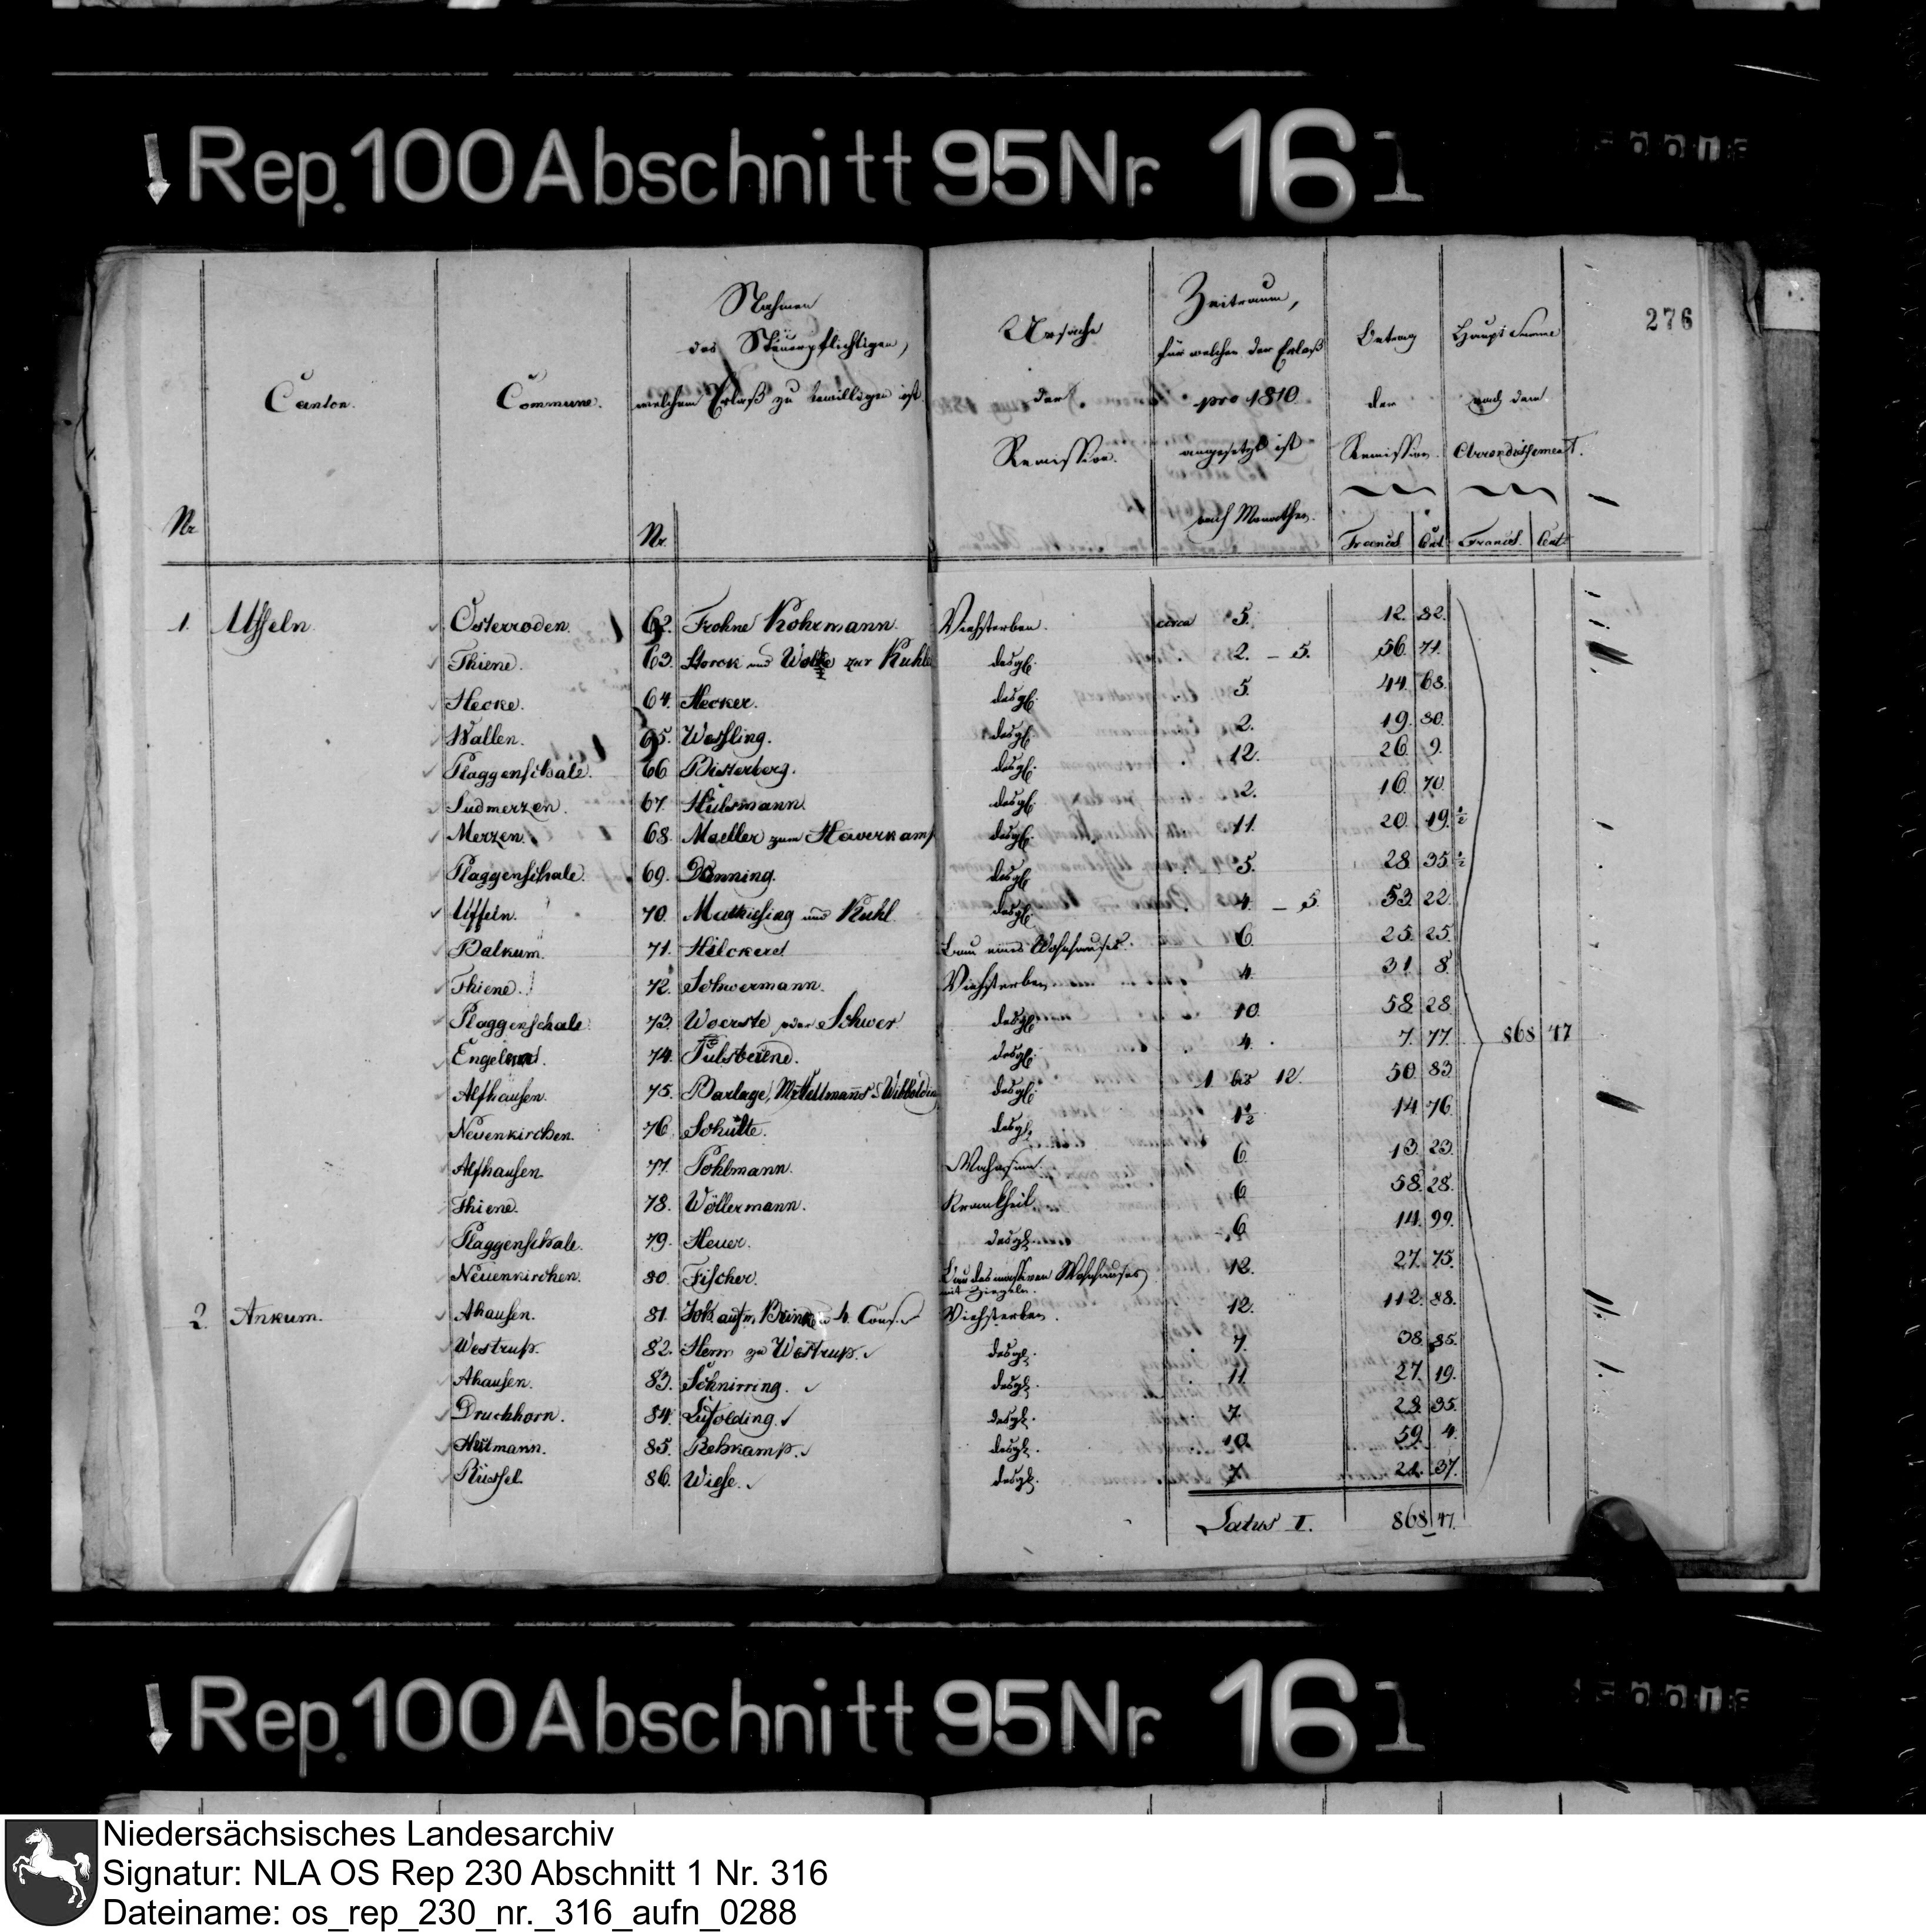 ↓ Rep. 100 Abschnitt 95 Nr. 16 1
276
Nr. Canton. Commune. Nr. Nahmen des Steuerpflichtigen, welchem Erlaß zu bewilligen ist. Ursache der Remission. Zeitraum, für welchen der Erlaß pro 1810 angesetzt ist nach Monathen. Betrag der Remission. Francs Cent Haupt Summe nach dem Arrondissement. Francs. Cent
1. Uffeln. Osterroden. 62. Frohne Kohrmann. Viehsterben. circa 5. 12. 82.
Thiene. 63. Storck und zur Kuhle desgl. 2. – 5. 56. 71.
Hecke. 64. Hecker. desgl. 5. 44. 68.
Wallen. 65. Wessling. desgl. 2. 19. 80.
Plaggenschale. 66. Bisterberg. desgl. 12. 26. 9.
Sudmerzen. 67. Hülsmann. desgl. 2. 16. 70.
Merzen. 68. Moeller zum Haverkamp desgl. 11. 20. 19. ½
Plaggenschale. 69. desgl. 5. 28. 35. ½
Uffeln. 70. und Kuhl. desgl. 4. – 5. 53. 22.
Balkum. 71. Hilckerd Bau eines Wohnhauses. 6. 25. 25.
Thiene. 72. Schwermann. Viehsterben 4. 31. 8.
Plaggenschale. 73. Woerste oder Schwer desgl. 10. 58. 28.
74. desgl. 4. 7. 77. 868 47
Alfhausen. 75. Barlage, desgl. 1 bis 12. 50. 83.
Neuenkirchen. 76. Schulte. desgl. 1½ 14. 76.
Alfhausen. 77. Pohlmann. 6. 13. 23.
Thiene. 78. Wöllermann. Krankheit. 6. 58. 28.
Plaggenschale. 79. Heuer. desgl. 6. 14. 99.
Neuenkirchen. 80. Fischer. Bau des massiven Wohnhauses mit Ziegeln. 12. 27. 75.
2. Ankum. Ahausen. 81. Joh. aufm Brink h. Cons. Viehsterben. 12. 112. 88.
Westrup. 82. Herm zu Westrup. desgl. 7. 38. 35.
Ahausen. 83. Schnirring. desgl. 11. 27. 19.
Druchhorn. 84. desgl. 7. 23. 35.
85. Rehkamp. desgl. 10. 59. 4.
Rüssel. 86. Wiese. desgl. 7. 37.
Latus I. 868 47.
↓ Rep. 100 Abschnitt 95 Nr. 16 1
Niedersächsisches Landesarchiv
Signatur: NLA OS Rep 230 Abschnitt 1 Nr. 316
Dateiname: os_rep_230_nr._316_aufn_0288